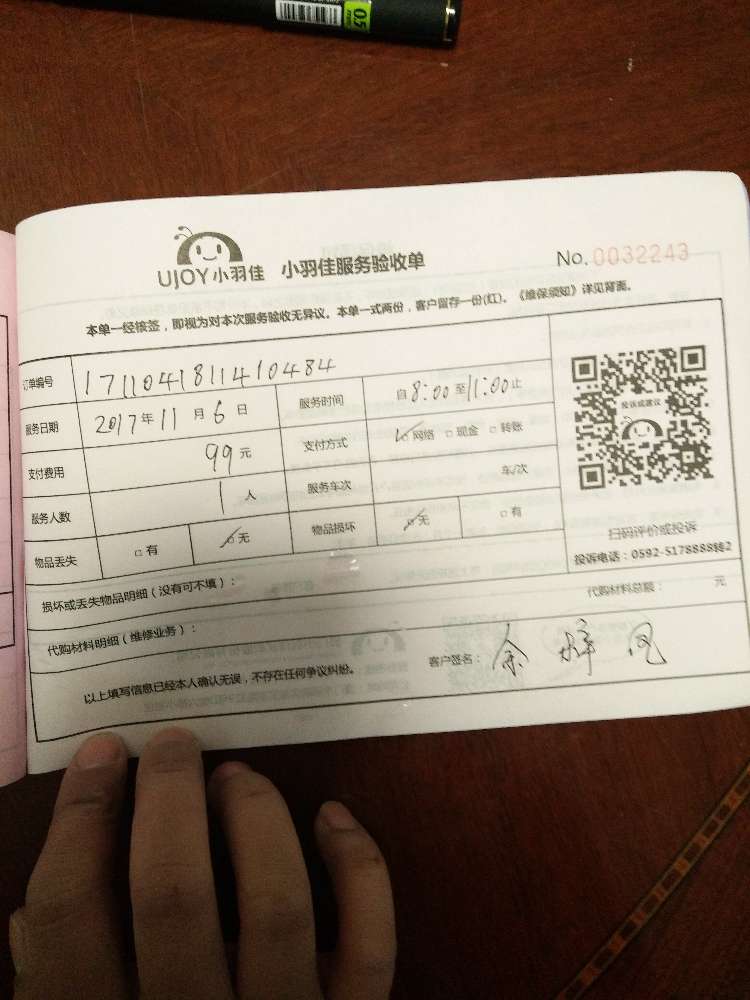 0.5
UJOY小羽佳 小羽佳服务验收单 No.0032243
本单一经核签，即视为对本次服务验收无异议。本单一式两份，客户留存一份(红)。《维保须知》详见背面。
订单编号 17110418111410484
服务日期 2017年11月6日 服务时间 自8:00至11:00止
支付费用 99元 支付方式 □网络 □现金 □转账
服务人数 1人 服务车次 车/次
物品丢失 □有 □无 物品损坏 □无 □有
投诉或建议
扫码评价或投诉
投诉电话：0592-5178888转2
损坏或丢失物品明细（没有可不填）：
代购材料明细（维修业务）： 代购材料总额： 元
以上填写信息已经本人确认无误，不存在任何争议纠纷。 客户签名：余